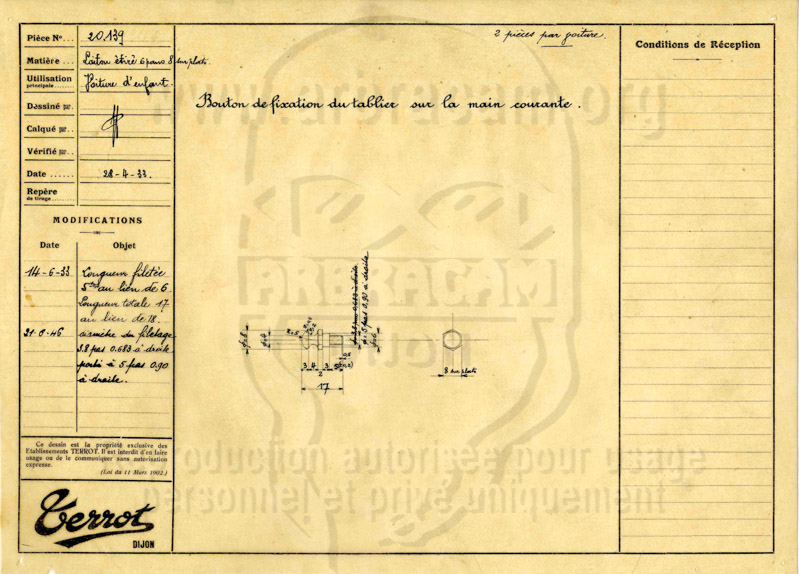 Pièce No... 20.139
2 pièces par voiture.
Conditions de Réception
Matière... Laiton étiré 6 pans 8 sur plats.
Utilisation
principale...... Voiture d'enfant.
Dessiné par.
Calqué par..
Vérifié par..
Date ...... 28-4-33.
Repère
de tirage........
Bouton de fixation du tablier sur la main courante.
MODIFICATIONS
Date Objet
14-6-33 Longueur filetée
au lieu de 6
Longueur totale 17
au lieu de 18.
du filetage
3.8 pas 0.683 à droite
porté à 5 pas 0.90
à droite.
3.8 pas 0.683 à droite
5 pas 0.90 à droite
3 4 3
2
17
8 sur plats
Ce dessin est la propriété exclusive des
Etablissements TERROT. Il est interdit d'en faire
usage ou de le communiquer sans autorisation
expresse.
(Loi du 11 Mars 1902.)
Terrot
DIJON
www.arbracam.org
ARBRACAM
reproduction autorisée pour usage
personnel et privé uniquement